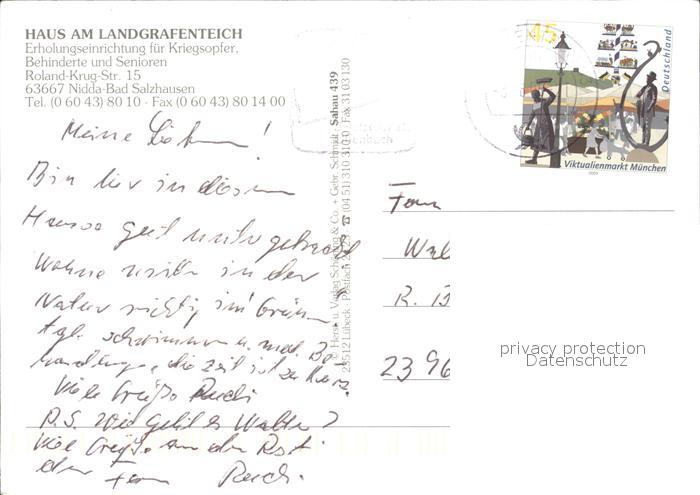 HAUS AM LANDGRAFENTEICH
Erholungseinrichtung für Kriegsopfer,
Behinderte und Senioren
Roland-Krug-Str. 15
63667 Nidda-Bad Salzhausen
Tel. (0 60 43) 80 10 · Fax (0 60 43) 80 14 00
45
Deutschland
Viktualienmarkt München
2003
Meine Lieben!
Bin hier in diesem
Hause gut untergebracht
Wohne mitten in der
Natur richtig im Grünen
tgl. schwimmen u. med. Be
handlungen, die Zeit ist zu kurz
Viele Grüße
P.S. Wie geht es Walter?
Viele Grüße an den Rest
der Fam
© Herst. u. Verlag Schöning & Co. + Gebr. Schmidt · Sahau 439
23512 Lübeck · Postfach ☎ (04 51) 310 310 · Fax 31 03 130
Fam
R.
2396
privacy protection
Datenschutz